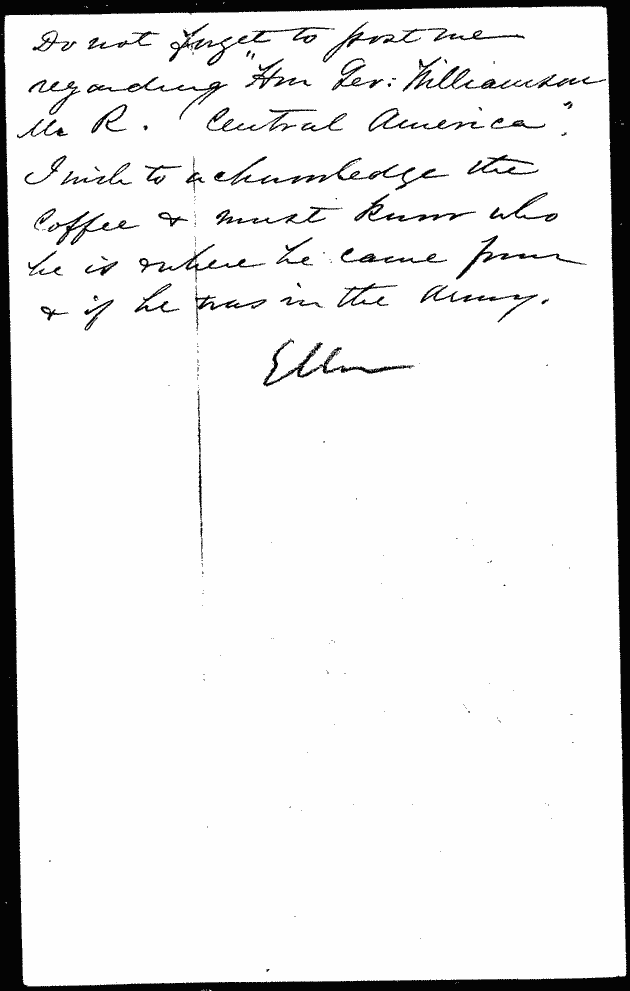 Do not forget to post me
regarding "Hon Geo: Williamson
M. R. Central America".
I wish to acknowledge the
Coffee & must know who
he is & where he came from
& if he was in the Army.
Ellen